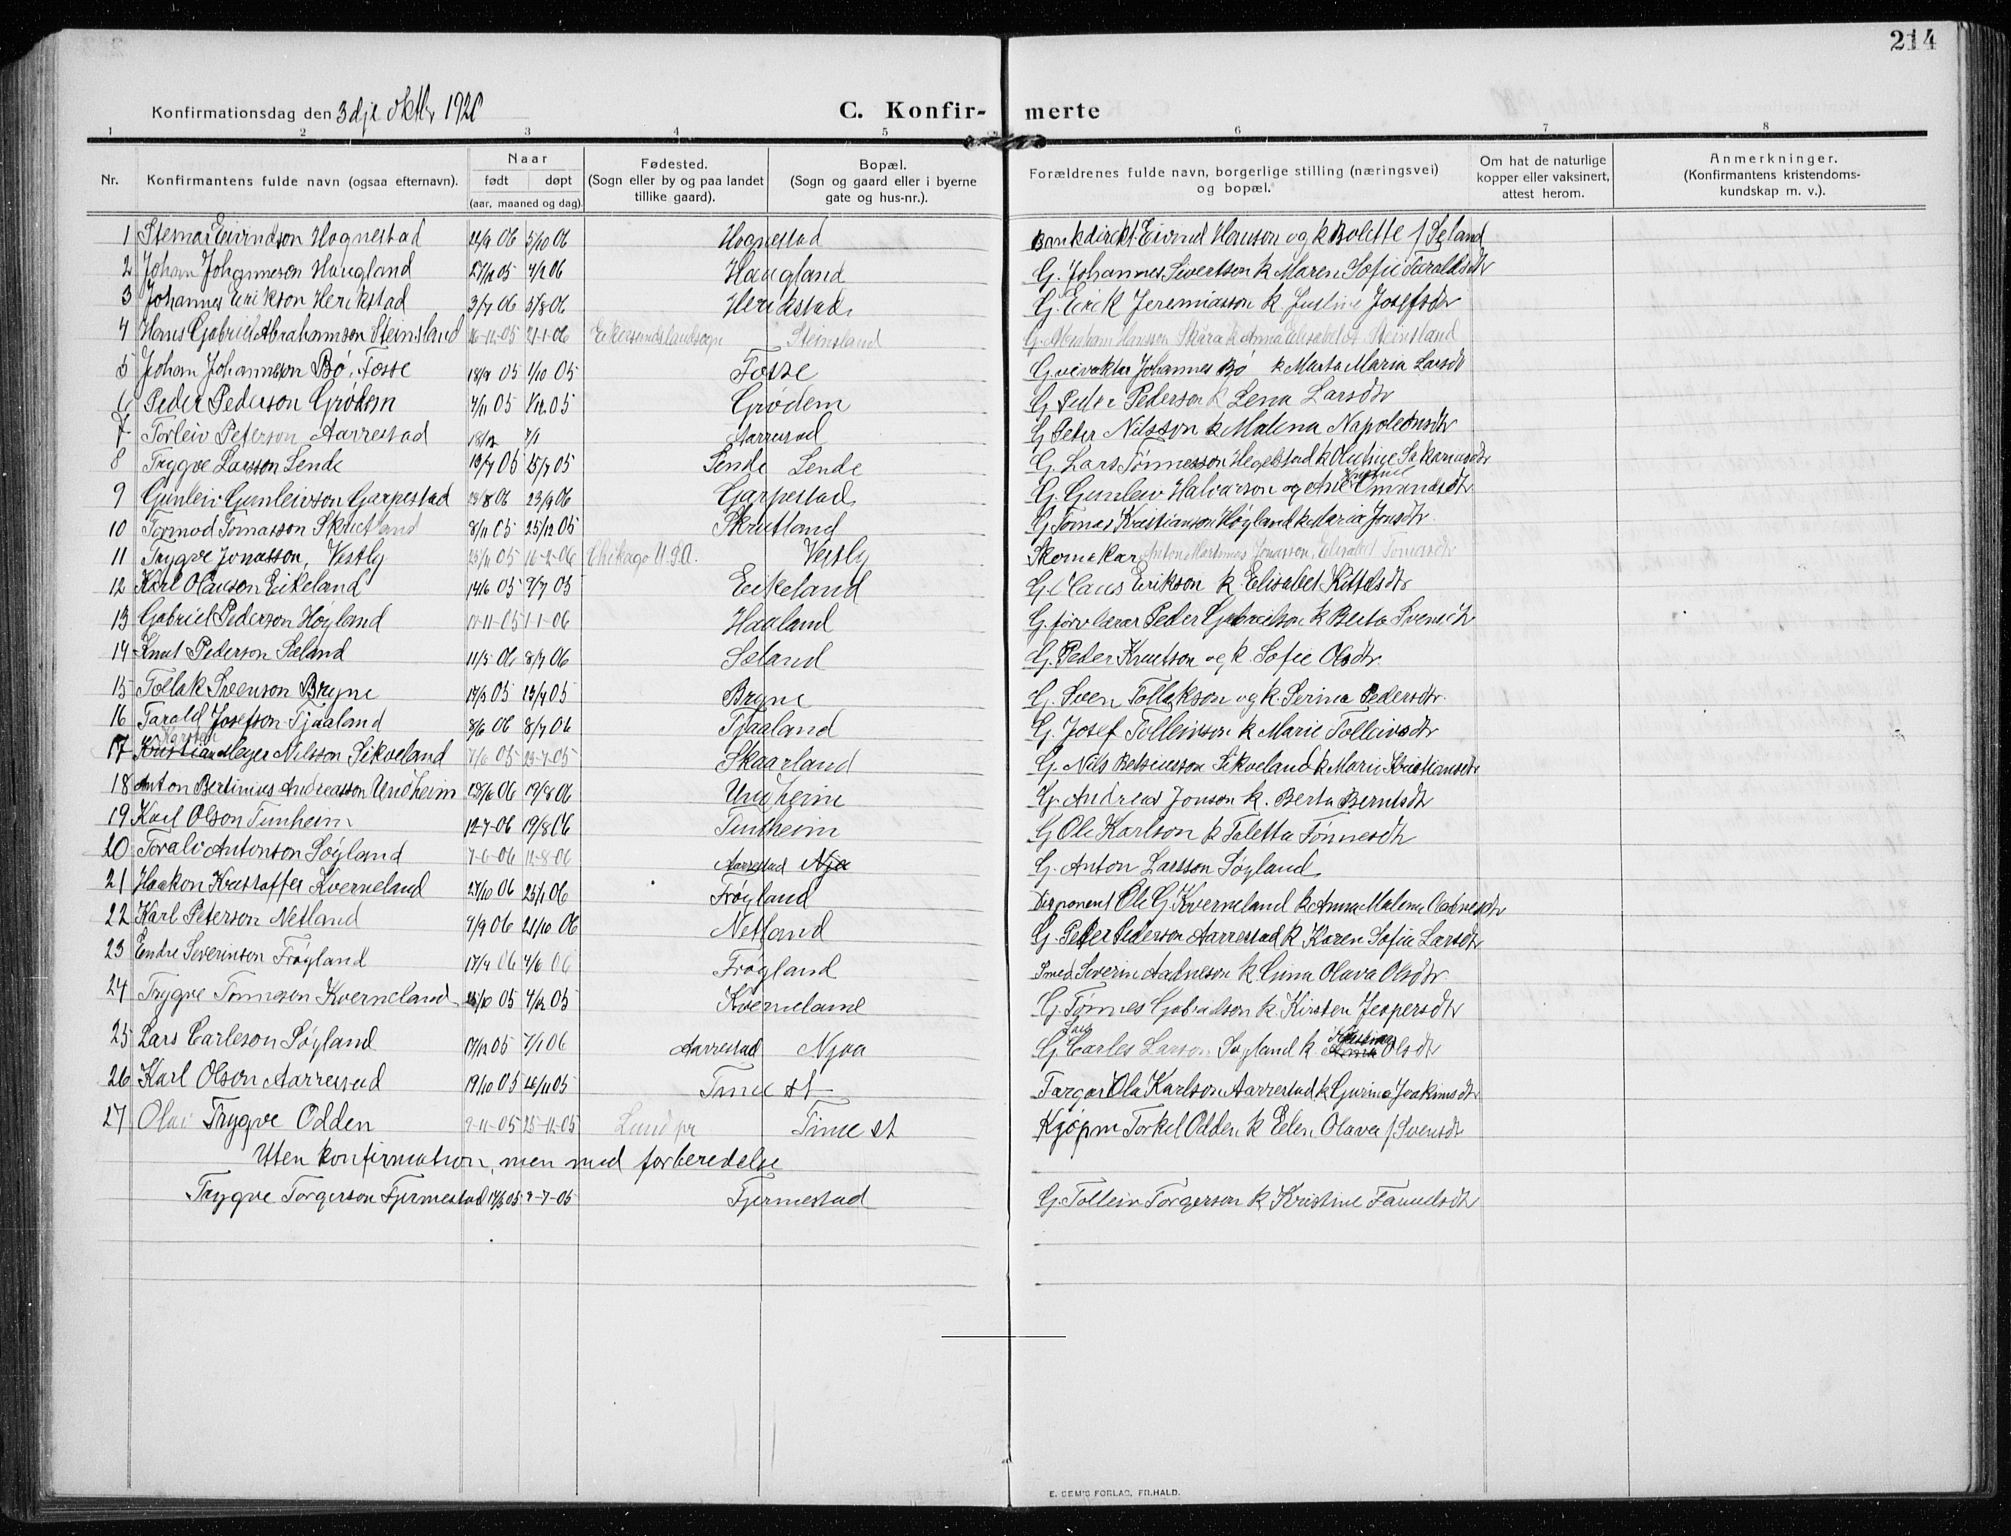 214
Konfirmationsdag den 3dje oktbr 1920 C. Konfir- merte
1 2 3 4 5 6 7 8
Nr. Konfirmantens fulde navn (ogsaa efternavn). Naar født døpt (aar, maaned og dag). Fødested. (Sogn eller by og paa landet tillike gaard). Bopæl. (Sogn og gaard eller i byerne gate og hus-nr.). Forældrenes fulde navn, borgerlige stilling (næringsvei) og bopæl. Om hat de naturlige kopper eller vaksinert, attest herom. Anmerkninger. (Konfirmantens kristendoms-kundskap m. v.).
1 Steinar Eivindson Hognestad 06 5/10 06 Hognestad Bankdirekt. Eivind Hanson og k Bolette f Seland
2 Johan Johanneson Haugland 27/12 05 06 Haugland G. Johannes Sivertson k Maren Sofie Taraldsdtr
3 Johannes Erikson Herikstad 3/7 06 5/8 06 Herikstad G. Erik Jeremiasson k Justine Josefsdtr
4 Hans Gabriel Abrahamson Steinsland 16-12-05 21-1-06 Eikersundslandsogn Steinsland G. Abraham Hansson Skåra k Anna Elisabet f Steinsland
5 Johan Johanneson Bø, Fosse 05 1/10 05 Fosse G. Johannes Bø k Marta Maria Larsdt
6 Peder Pederson Grødem 4/11 05 05 Grødem G Peder Pederson k Lena Larsdtr
7 Torleiv Peterson Aarrestad 18/12 7/1 Aarrestad G Peter Nilsson k Malena Napoleonsdtr
8 Trygve Larsson Lende 13/7 05 25/7 05 Lende Lende G. Lars Tønnesson Hegelstad k Olutine Sakariasdtr
9 Gunleiv Gunleivson Garpestad 06 23/9 06 Garpestad G. Gunleiv Halvarson og Omundsdtr
10 Tormod Tomasson Skrutland 8/11 05 25/12 05 Skrutland G Tomas Kristianson Høyland k Maria Jonsdtr
11 Trygve Jonasson, Vestly 23/11 05 16-2-06 Chikago U.S.A. Vestly Skomakar Anton Martinus Jonasson, Elisabet Tomasdtr
12 Karl Olauson Eikeland 14/6 05 9/7 05 Eikeland G. Olaus Erikson k Elisabet Kittelsdtr
13 Gabriel Pederson Høyland 11-05 1-1-06 Haaland G. forv. lærar Peder Gabrielson k Berta Svensdtr
14 Knut Pederson Sæland 11/5 06 8/7 06 Sæland G. Peder Knutson og k. Sofie Olsdtr.
15 Tollak Svenson Bryne 17/3 05 05 Bryne G. Sven Tollakson og k. Serina Pedersdtr.
16 Tarald Josefson Tjaaland 8/6 06 8/7 06 Tjaaland G. Josef Tolleivson k Marie Tolleivsdtr
17 Karsten Kristian Meyer Nilsson Sikveland 7/6 05 23-7-05 Skaarland G. Nils Sikveland k Marie Kristiansdtr
18 Anton Bertinius Andreasson Undheim 06 19/8 06 Undheim G. Andreas Jonson k. Berta Berntsdtr
19 Karl Olson Tunheim 12-7-06 19/8 06 Tunheim G Ole Karlson k Taletta Tønnesdtr
20 Toralv Antonson Søyland 7-6-06 12-8-06 Aarrestad Njå G. Anton Larsson Søyland
21 Haakon Kristoffer Kverneland 27/10 06 06 Frøyland Disponent Ole G Kverneland k Anna Malene
22 Karl Peterson Netland 9/9 06 21/10 06 Netland G. Peder Pederson Aarrestad k Karen Sofie Larsdtr
23 Endre Severinson Frøyland 17/4 06 4/6 06 Frøyland Smed Severin Aadneson k Gina Olava Olsdtr
24 Trygve Tønnesen Kverneland 05 4/12 05 Kverneland G. Tønnes Gabrielson k Kirsten Jespersdtr
25 Lars Carleson Søyland 17/12 05 7/1 06 Aarrestad Njaa G Carles Larson Søyland k Olsdtr
26 Karl Olson Aarrestad 19/10 05 26/11 05 Time st Fargar Ola Karlson Aarrestad k Gurine Joakimsdtr
27 Olai Trygve Odden 9-11-05 25-12-05 Lund pr Time st Kjøpm Torkel Odden k Elen Olava f Svensdt
Uten konfirmation, men med forberedelse
Trygve Torgerson Fjermestad 17/5 05 9-7-05 Fjermestad G. Tolleiv Torgerson k Kristine
E. SEM'S FORLAG, FR.HALD.